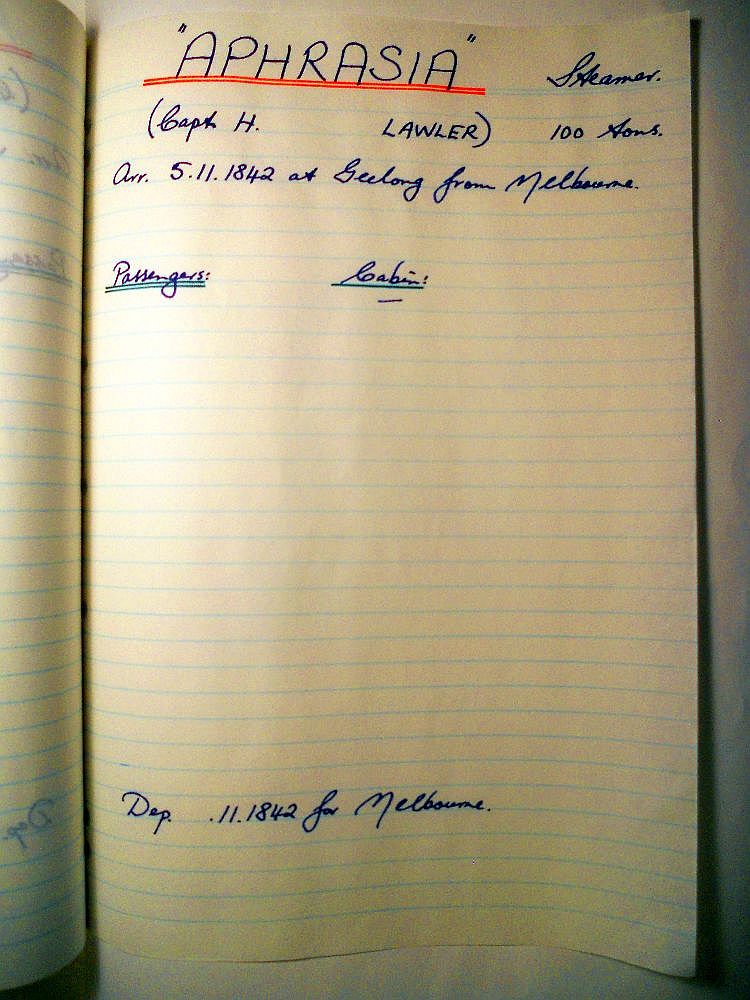 "APHRASIA" Steamer.
(Capt H. LAWLER) 100 tons.
Arr. 5.11.1842 at Geelong from Melbourne.
Passengers: Cabin:
—
Dep. .11.1842 for Melbourne.
Dep.